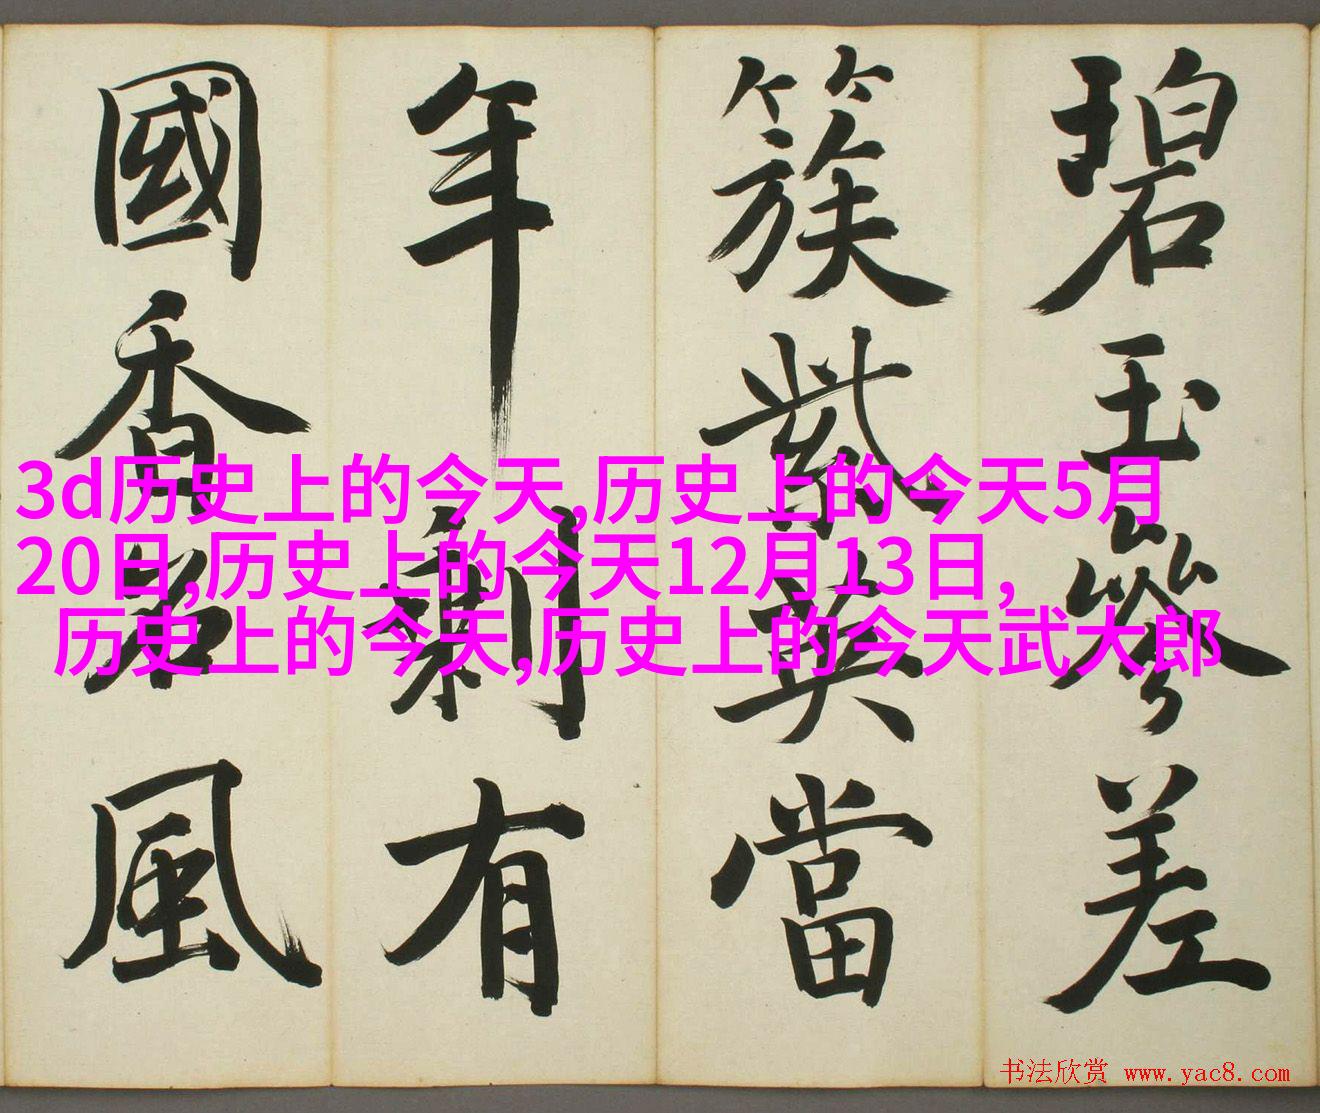 碧玉參差
簇紫英當
年剩有
國香名風
3d历史上的今天,历史上的今天5月
20日,历史上的今天12月13日,
历史上的今天,历史上的今天武大郎
书法欣赏 www.yac8.com